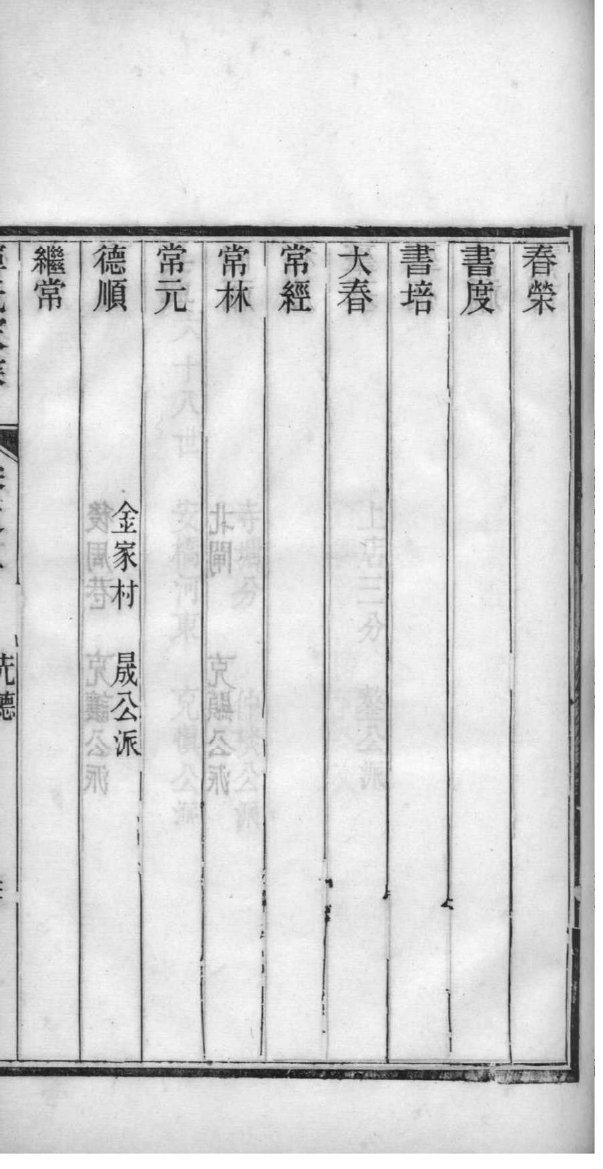 春榮
書度
書培
大春
常經
常林
常元
德順
金家村　晟公派
繼常